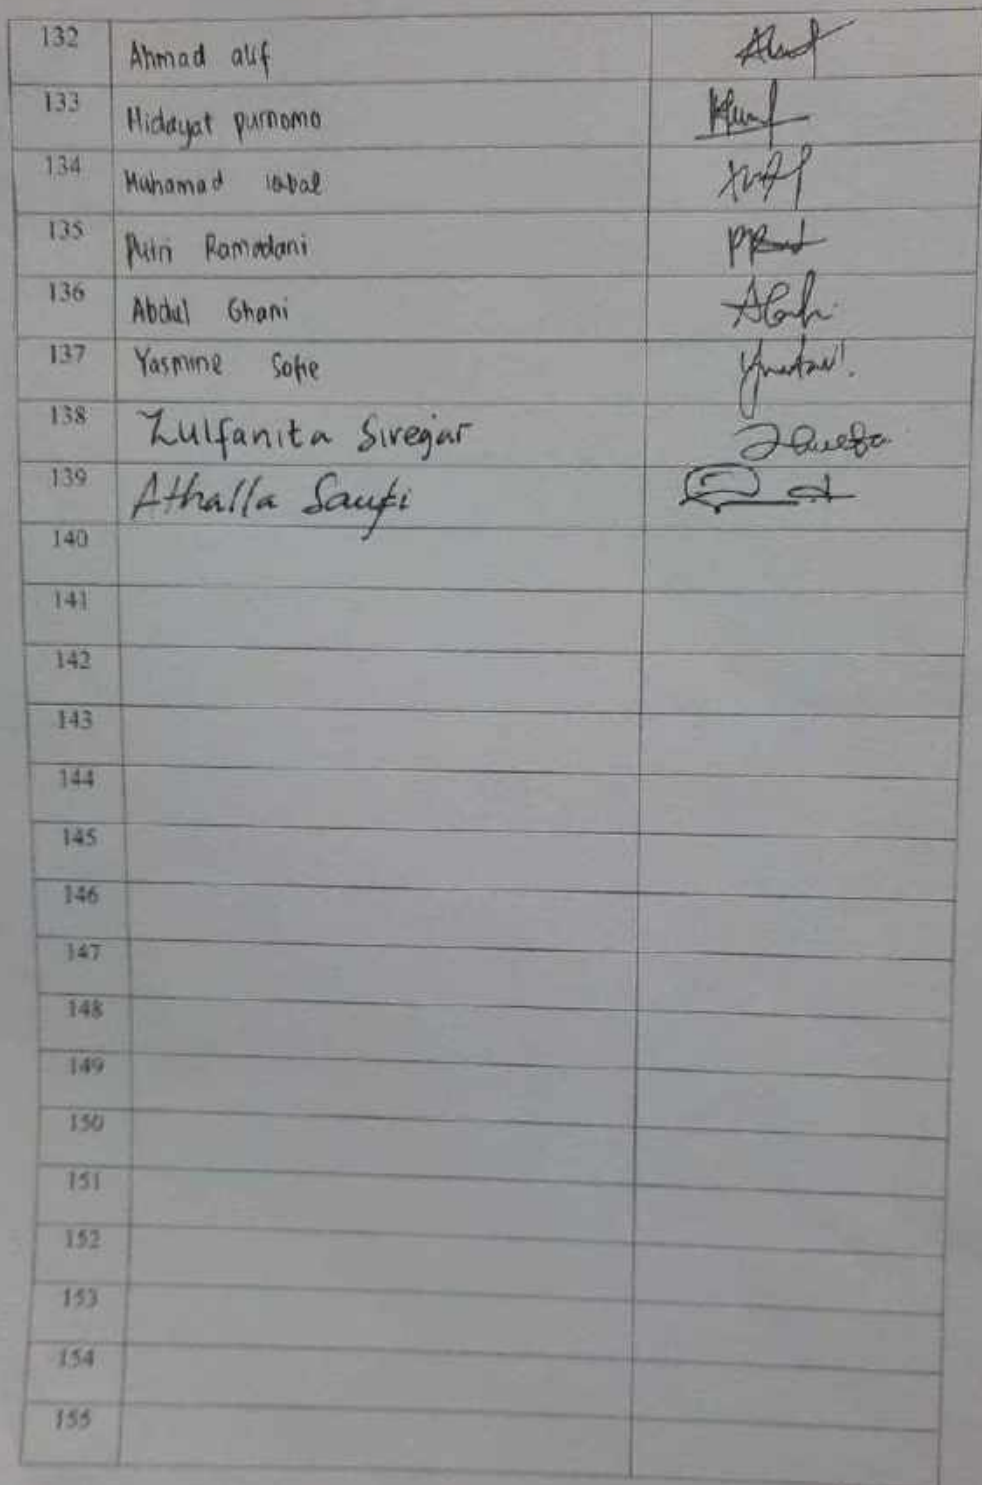 132 Ahmad alif
133 Hidayat purnomo
134 Muhamad iqbal
135 Putri Ramadani
136 Abdul Ghani
137 Yasmine Sofie
138 Zulfanita Siregar
139 Athalla Saufi
140
141
142
143
144
145
146
147
148
149
150
151
152
153
154
155